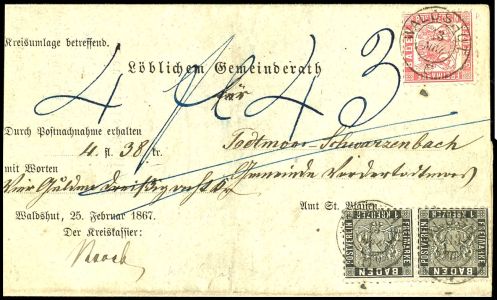 Kreisumlage betreffend.
WALDSHUT
BADEN
FREIMARKE
Löblichem Gemeinderath
für
4 43
Durch Postnachnahme erhalten
4. fl. 38 kr.
Todtmoos-Schwarzenbach
mit Worten
Vier Gulden dreißig
Gemeinde Vordertodtmoos
Waldshut, 25. Februar 1867.
Amt St. Blasien
Der Kreiskassier:
1 KREUZER
POSTVEREIN
FREIMARKE
BADEN
1 KREUZER
POSTVEREIN
FREIMARKE
BADEN